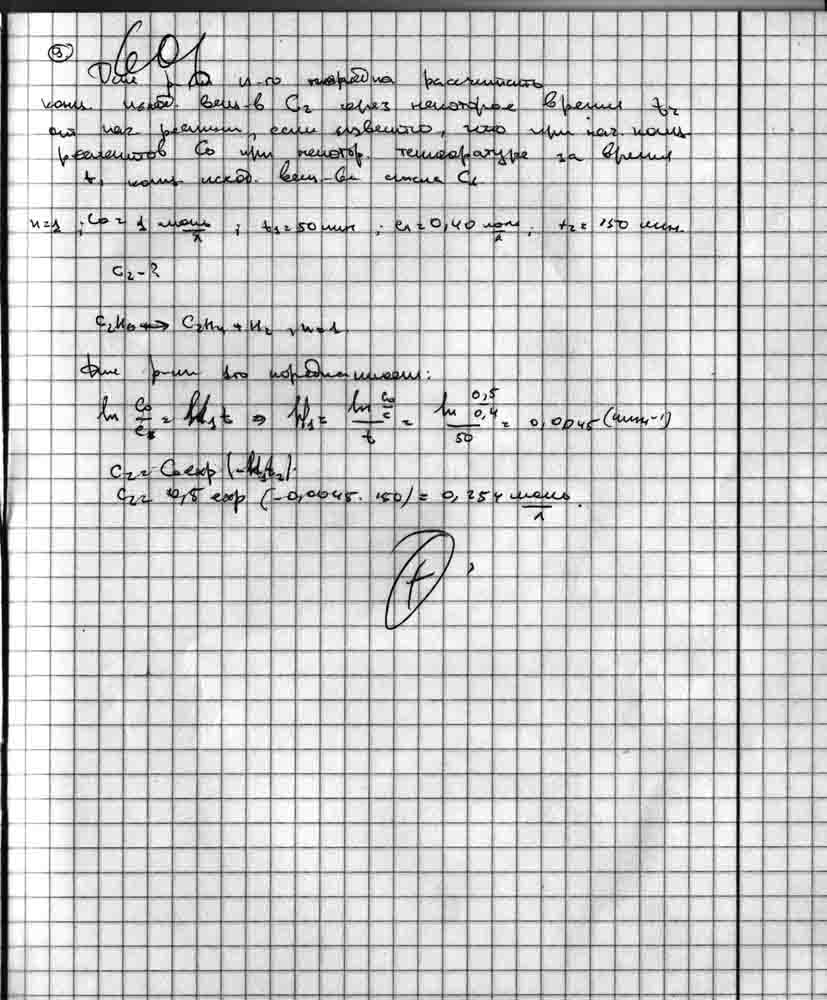 9)
601
Для р-и n-го порядка рассчитать
конц. исход. вещ-в C₂ через некоторое время t₂
от нач. реакции, если известно, что при нач. конц.
реагентов C₀ при некотор. температуре за время
t₁ конц. исход. вещ-ва стала C₁
n=1 ; C₀=1 моль/л ; t₁=50 мин ; c₁=0,40 моль/л ; t₂=150 мин.
C₂-?
C₂H₆ ↔ C₂H₄ + H₂ , n=1
Для р-ии 1го порядка имеем:
ln C₀/C₁ = k₁t ⇒ k₁ = ln C₀/C / t = ln 0,5/0,4 / 50 = 0,0045 (мин⁻¹)
C₂ = C₀ exp (-k₁t₂).
C₂ = 0,5 exp (-0,0045 · 150) = 0,254 моль/л.
+